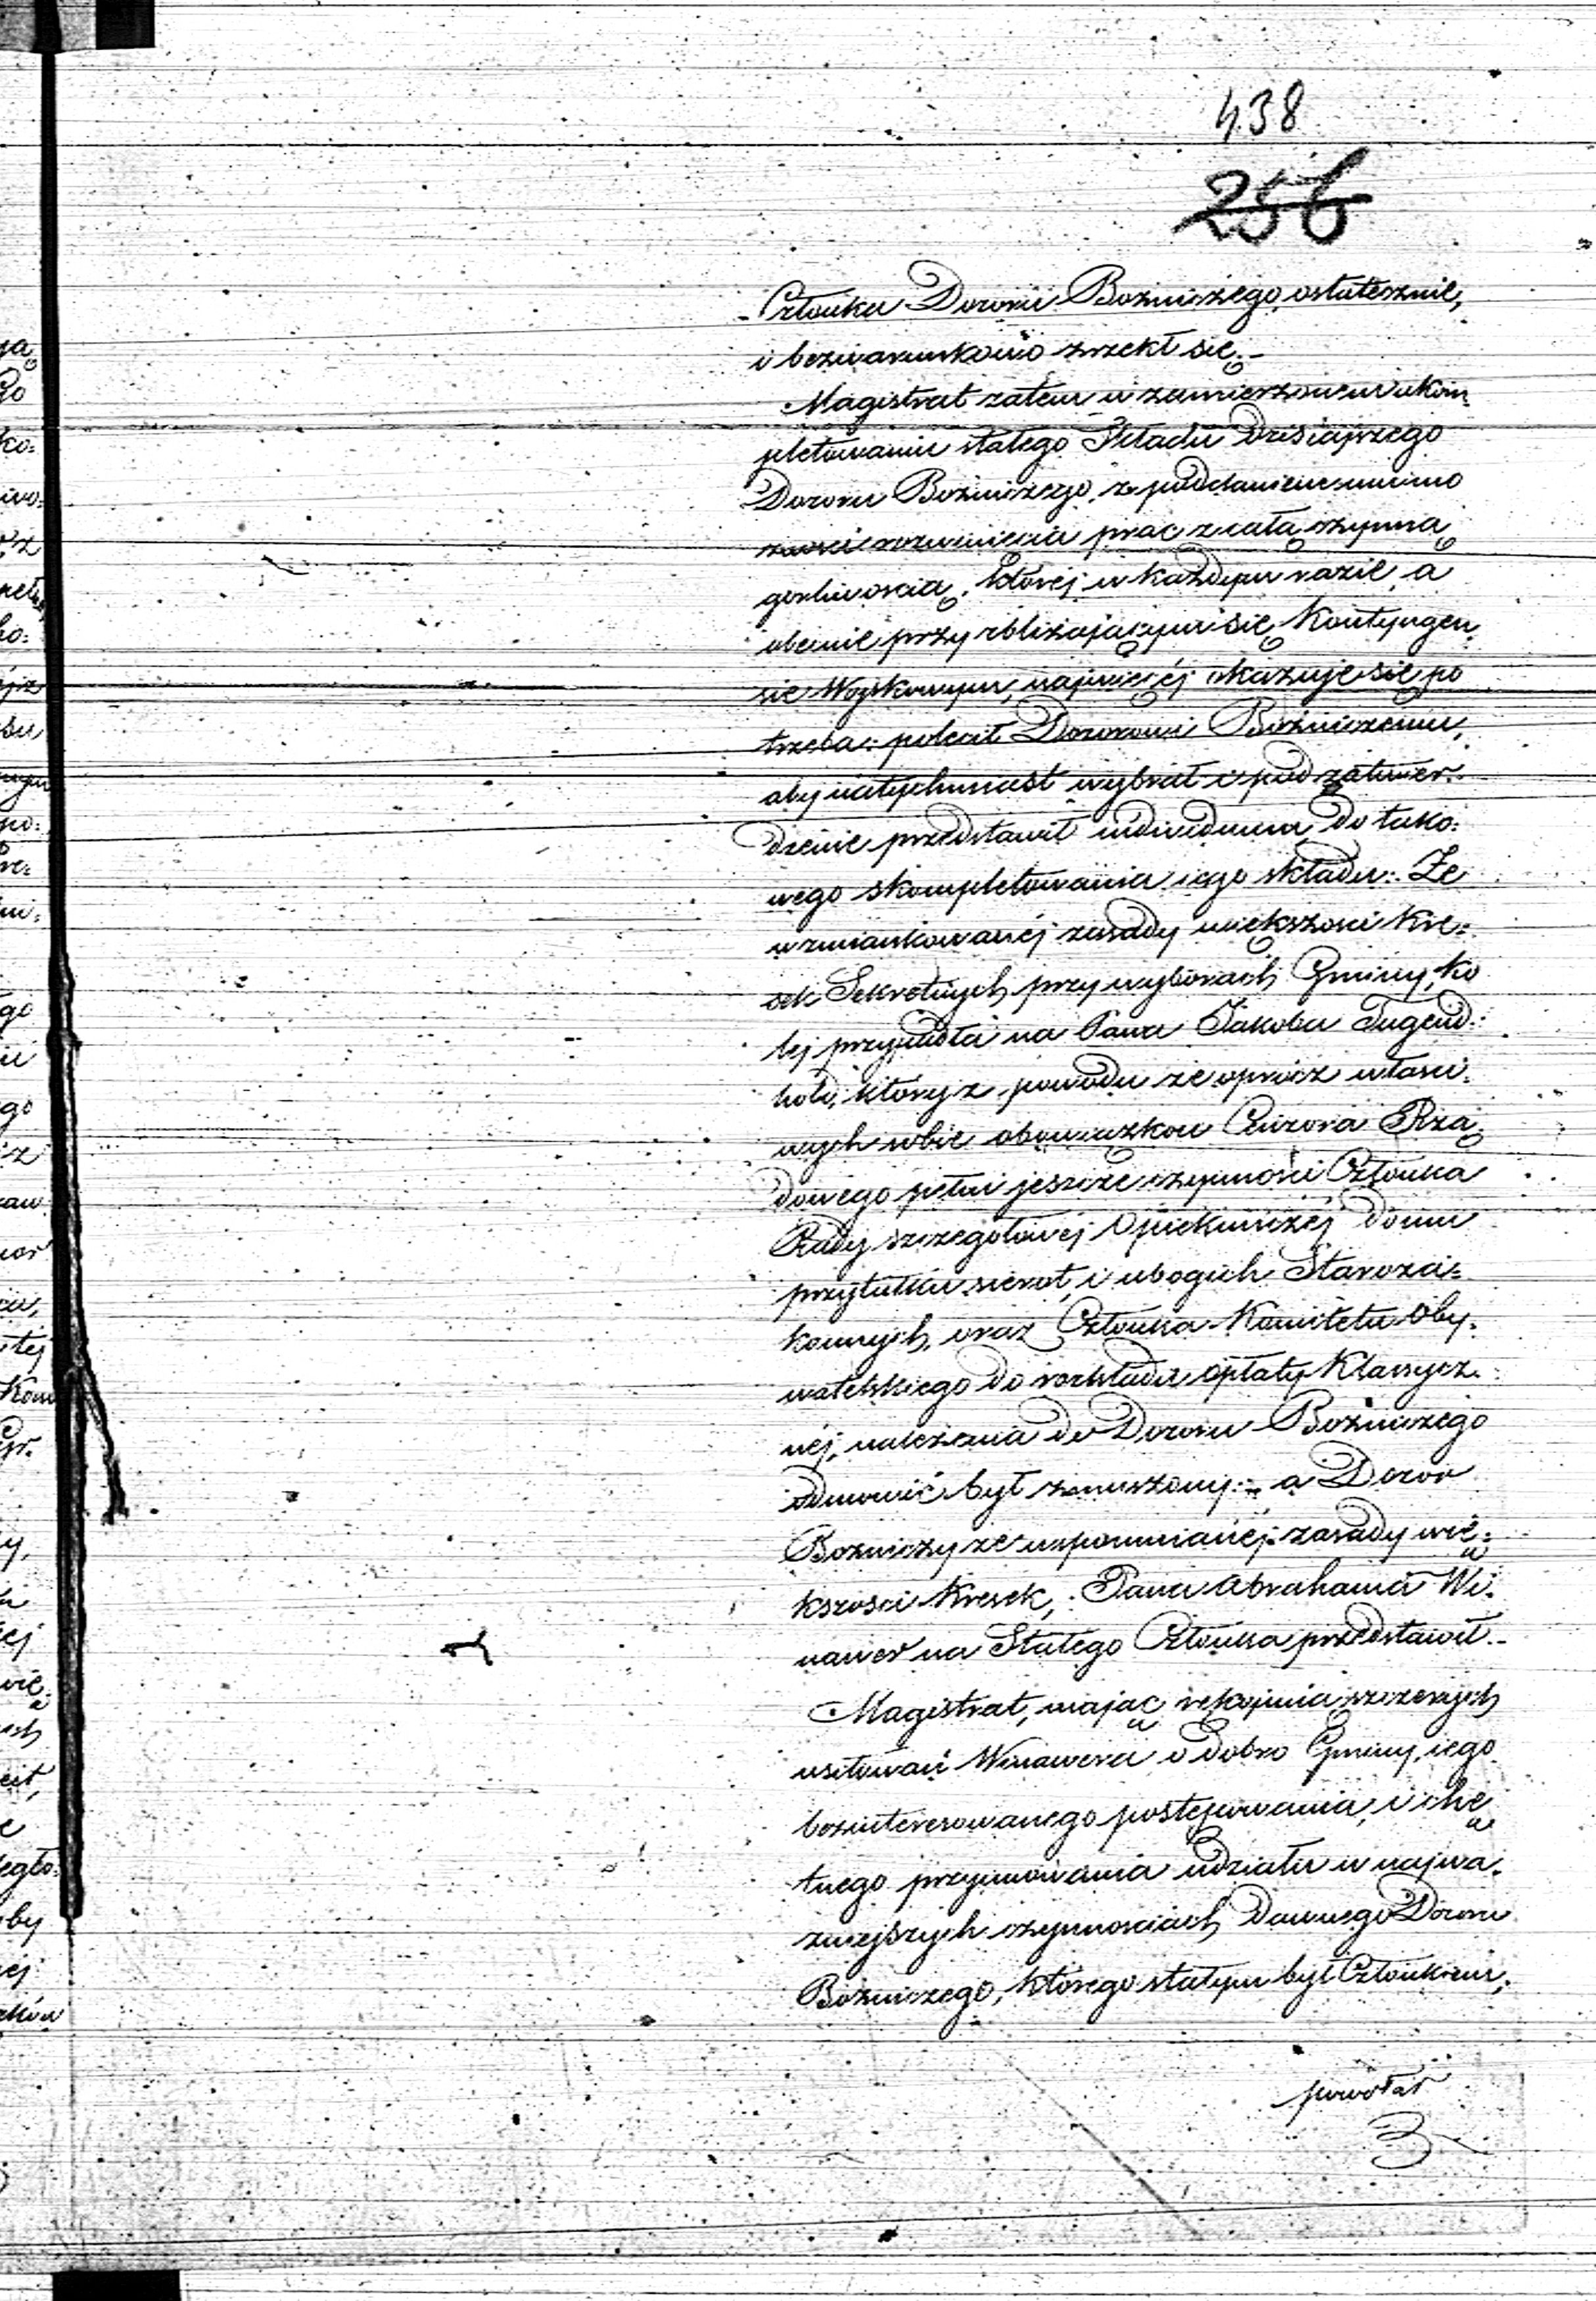 438
256
Członka Dozoru Bożniczego, ostatecznie,
i bezwarunkowo zrzekł się.-
Magistrat zatem w zamierzonem ukom-
pletowaniu stałego Składu Dzisiajszego
Dozoru Bożniczego, z podołaniem
rozwinięcia prac z całą czynną
gorliwością, której w każdym razie, a
obecnie przy zbliżającym się Kontyngen-
sie Woyskowym, najwięcéj okazuje się po
trzeba: polecił Dozorowi Bożniczemu,
aby natychmiast wybrał i pod zatwier-
dzenie przedstawił individuum do tako:
wego skompletowania iego składu: Ze
wzmiankowanéj zasady większości Kre:
sek Sekretnych przy wyborach Gminy, ko
lej przypadła na Pana Jakóba Tugend:
hold, który z powodu że oprócz właści-
wych sobie obowiązkow Cenzora Rzą-
dowego pełni jeszcze czynności Członka
Rady szczegółowéj Opiekuńczéj Domu
przytułku sierot, i ubogich Staroza=
konnych, oraz Członka Komitetu Oby-
watelskiego do rozkładu opłaty Klassycz-
néj, należenia do Dozoru Bożniczego
odmówić był zmuszony:- a Dozor
Bozniczy ze wspomnianéj zasady wię-
kszości Kresek, Pana Abrahama Wi-
nawer na Stałego Członka przedstawił.-
Magistrat, mając rękojmią szczerych
usiłowań Winawera o dobro Gminy, iego
bezinteresowanego postępowania, i chę
tnego przyjmowania udziału w najwa-
żniejszych czynnościach Dawnego Dozoru
Bożniczego, którego stałym był Członkiem,
powołał